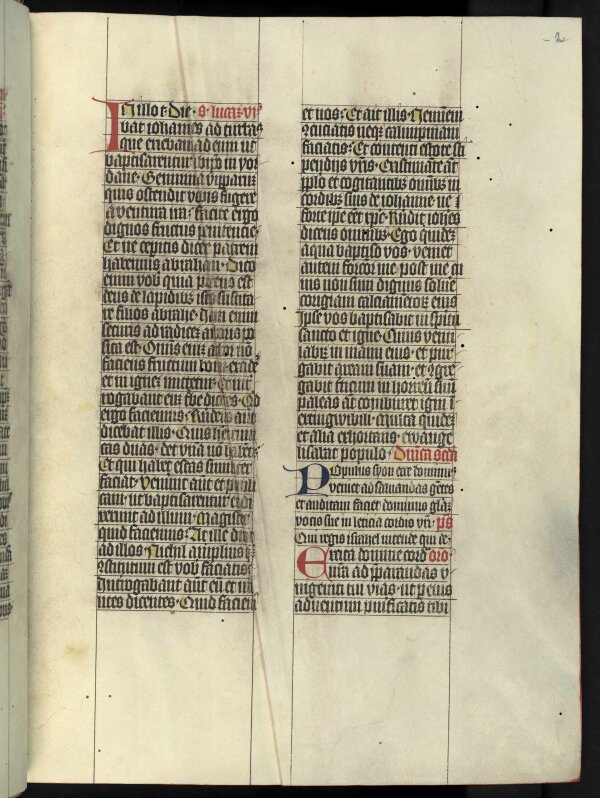 2
In illo t: Die· S· lucaz vi
bat iohannes ad turbas
que exiebant ad eum ut
baptisarentur ab ipo in ior
dane· Genimina viperarum
quis ostendit vobis fugere
a ventura ira· facite ergo
dignos fructus penitencie·
Et ne ceperitis dicere patrem
habemus abraham· Dico
enim vobis quia potens est
deus de lapidibus istis suscita
re filios abrahe· Iam enim
securis ad radicem arboris po
sita est· Omnis enim arbor non
faciens fructum bonum excide
et in ignem mittetur· Et int
rogabant eum turbe dicentes· Qd
ergo faciemus· Respondens aut
dicebat illis· Qui habet tuni
cas duas· det non habenti·
Et qui habet escas similiter
faciat· Venerunt aut et publi
cani ut baptisarentur et di
xerunt ad illum· Magister
quid faciemus· At ille dixit
ad illos· Nichil amplius q
constitutum est vob faciatis·
Interrogabant aut eum et mi
lites dicentes· Quid faciem
et nos· Et ait illis· Neminem
concuciatis neque calumpniam
faciatis· Et contenti estote sti
pendiis vris· Existimante aut
pplo et cogitantibus omnibus in
cordibus suis de iohanne ne
forte ipse eet xpc· Rndit iohes
dicens omnibus· Ego quidem
aqua baptiso vos· veniet
autem forcior me post me cu
ius non sum dignus solue
corrigiam calciamentorum eius
Ipse vos baptisabit in spiritu
sancto et igne· Cuius venti
labrum in manu eius· et pur
gabit aream suam· et congre
gabit triticum in horreum suum
paleas aut comburet igni i
extinguibili· Multa quidem
et alia exhortans· ewange
lisabat populo· Dnica scda
Populus syon ecce dominus
veniet ad saluandas gentes
et auditam faciet dominus gloriam
vocis sue in leticia cordis vri· ps
Qui regis israhel intende qui de·
Excita domine corda oro
nostra ad preparandas v
nigeniti tui vias· ut per eius
aduentum purificatis tibi